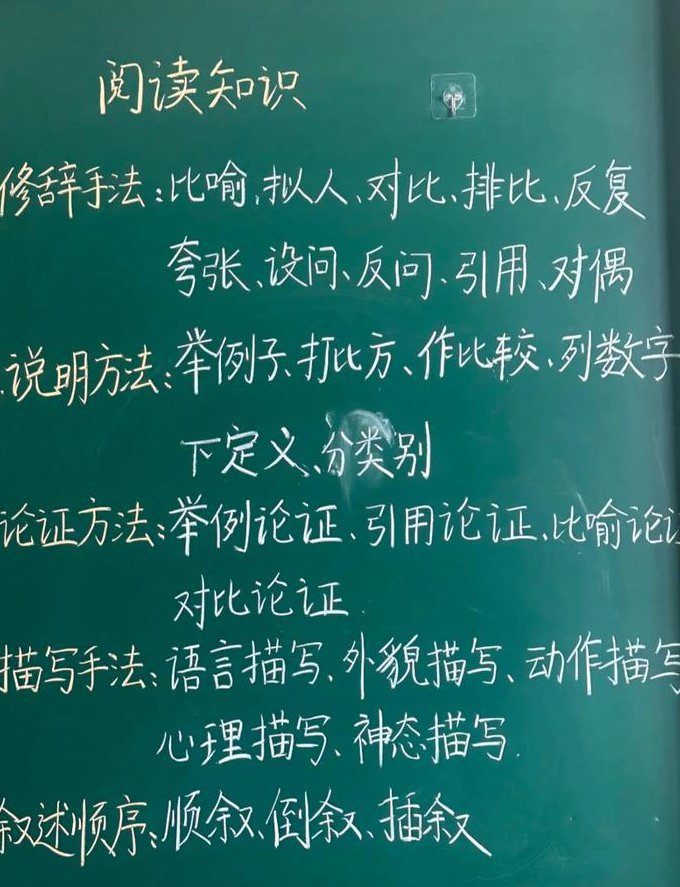 阅读知识
修辞手法:比喻、拟人、对比、排比、反复
夸张、设问、反问、引用、对偶
说明方法:举例子、打比方、作比较、列数字
下定义、分类别
论证方法:举例论证、引用论证、比喻论证
对比论证.
描写手法:语言描写、外貌描写、动作描写
心理描写、神态描写.
叙述顺序:顺叙、倒叙、插叙